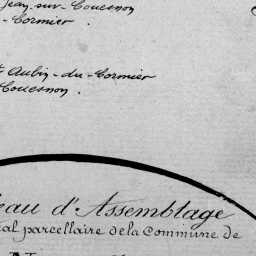 Jean-sur-Couesnon
-Cormier.
t Aubin-du-Cormier
Couesnon.
eau d'Assemblage
al parcellaire de la Commune de